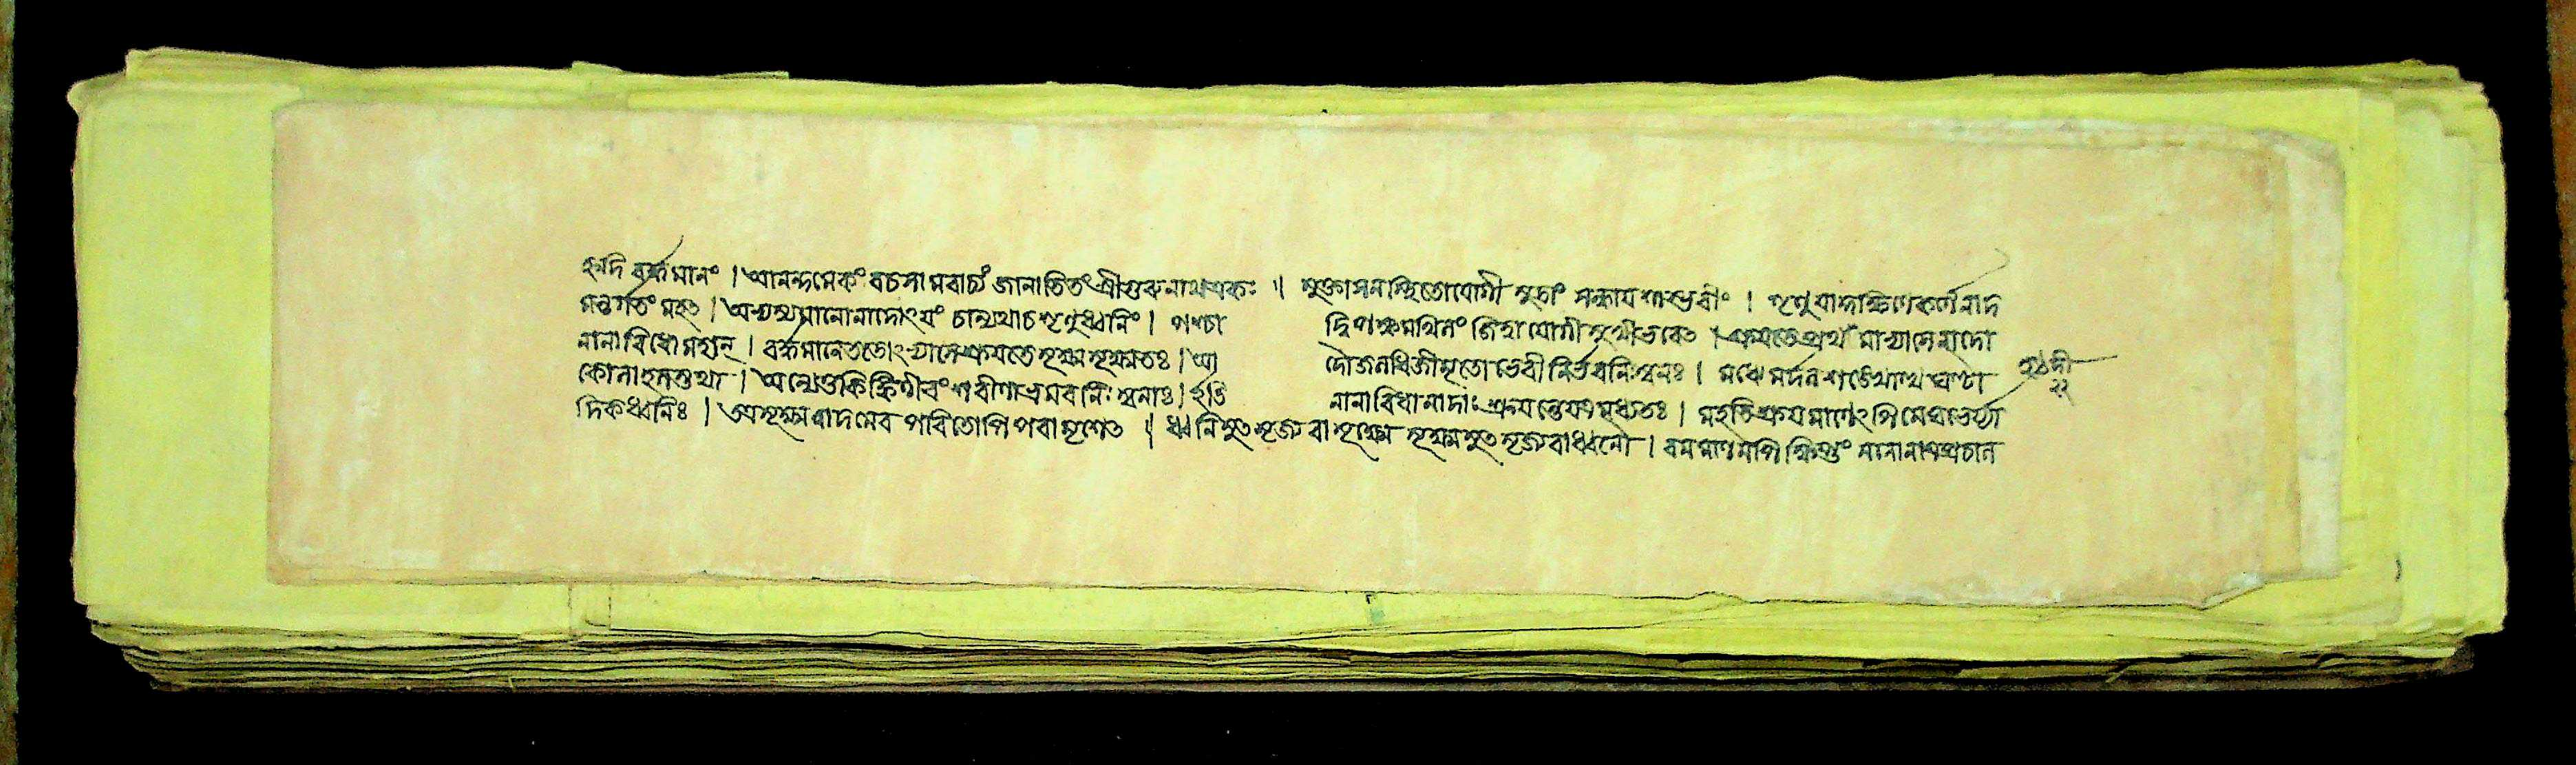 হৃদি বর্দ্ধমানং । আনন্দমেকং বচসামবাচ্যং জানাতিতং শ্রীগুরুনাথএকঃ ॥ মুক্তাসনস্থিতোযোগী মুদ্রাং সন্ধায শাম্ভবীং । শৃণুযাদ্দক্ষিণেকর্ণেনাদ
মন্তর্গতং মহৎ । অভ্যস্যমানোনাদোংযং চান্যথাচশৃণুধ্বনিং । পশ্চা দ্বিপক্ষমখিলং জিত্বা যোগী সুখীভবেৎ । শ্রুযতেপ্রথমাভ্যাসেনাদো
নানাবিধোমহান্ । বর্দ্ধমানেততোংভ্যাসেশ্রুযতেসূক্ষ্মসূক্ষ্মতঃ । আ দৌজলধিজীমূতো ভেরীনির্ঝরনিঃস্বনঃ । মধ্যেমর্দলশঙ্খোত্থঘণ্টা
কোলাহলস্তথা । অন্ত্যেতুকিঙ্কিণীবংশবীণাভ্রমরনিঃস্বনাঃ । ইতি নানাবিধানাদাঃ শ্রুযন্তেযত্রমধ্যতঃ । মহতিশ্রুযমাণেংপিমেঘভের্য্যা
দিকধ্বনিঃ । তত্রসূক্ষ্মনাদমেব পরিতোপিপরামৃশেৎ ॥ ধ্বনিমুৎসৃজ্যবাসূক্ষ্মে সূক্ষ্মমুৎসৃজ্যবাধ্বনৌ । রমমাণমপিক্ষিপ্তং মনোনান্যত্রচাল
হঠদী
২২